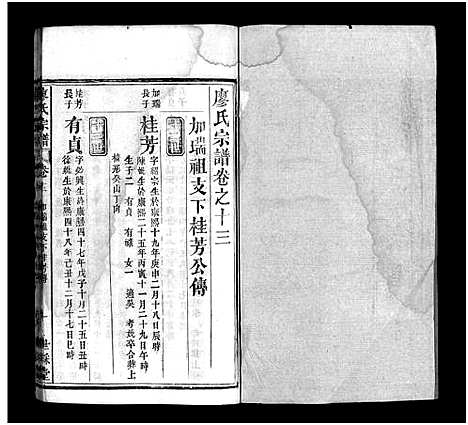 廖氏宗譜卷之十三
加瑞祖支下桂芳公傳
加瑞長子
桂芳
字紹宗生於康熙十九年庚申二月十八日辰時
陳姓生於康熙二十五年丙寅十一月二十九日午時
生子二 有貞 有祿 女一 適吳 考妣卒合葬上
桂形癸山丁向
十三世
桂芳長子
有貞
字必興生於康熙四十七年戊子十月二十五日丑時
徐姓生於康熙四十八年己丑十二月十七日巳時
廖氏宗譜
加瑞祖支下桂芳傳
一
世綵堂